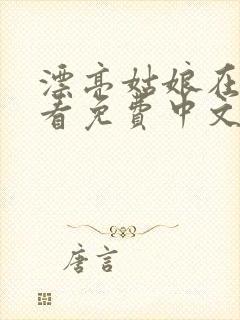 漂亮姑娘在
看免費中文
唐言